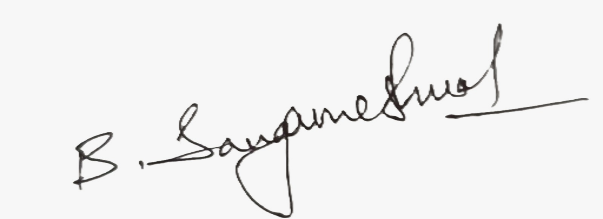 B. Sangameshwar